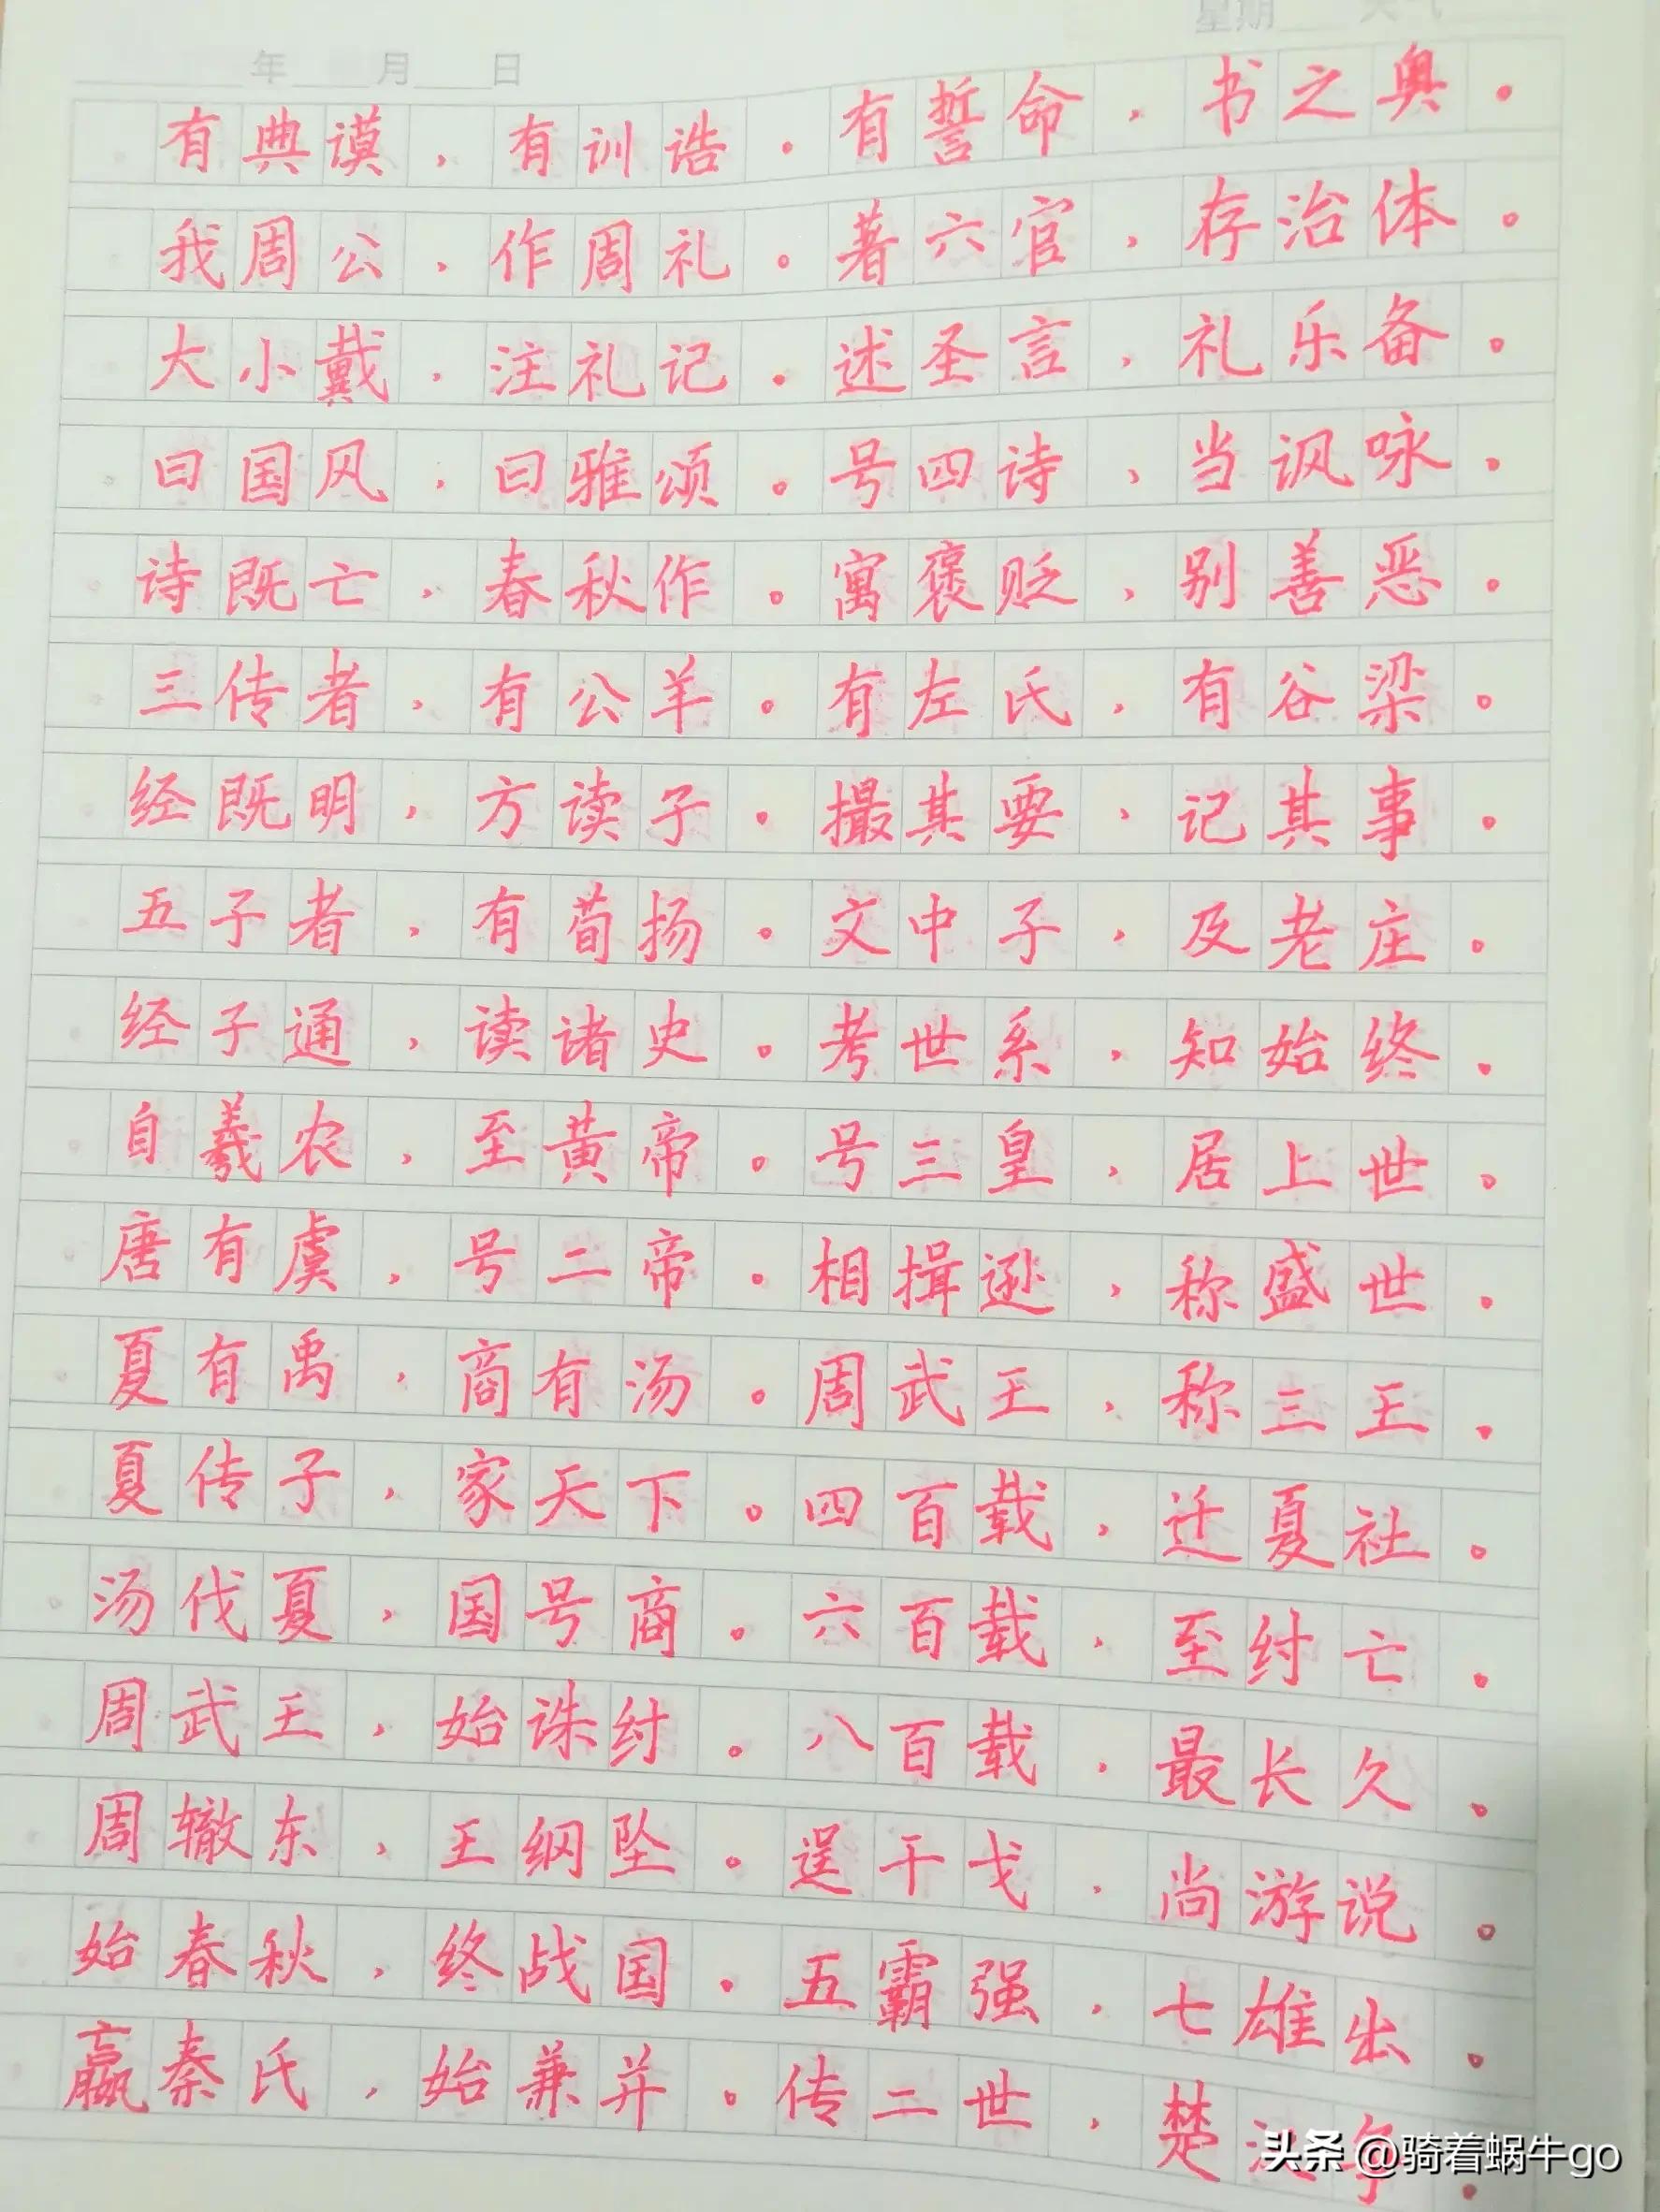 星期 天气
年 月 日
有典谟，有训诰。有誓命，书之奥。
我周公，作周礼。著六官，存治体。
大小戴，注礼记。述圣言，礼乐备。
曰国风，曰雅颂。号四诗，当讽咏。
诗既亡，春秋作。寓褒贬，别善恶。
三传者，有公羊。有左氏，有谷梁。
经既明，方读子。撮其要，记其事。
五子者，有荀扬。文中子，及老庄。
经子通，读诸史。考世系，知始终。
自羲农，至黄帝。号三皇，居上世。
唐有虞，号二帝。相揖逊，称盛世。
夏有禹，商有汤。周武王，称三王。
夏传子，家天下。四百载，迁夏社。
汤伐夏，国号商。六百载，至纣亡。
周武王，始诛纣。八百载，最长久。
周辙东，王纲坠。逞干戈，尚游说。
始春秋，终战国。五霸强，七雄出。
嬴秦氏，始兼并。传二世，楚汉争。
头条 @骑着蜗牛go